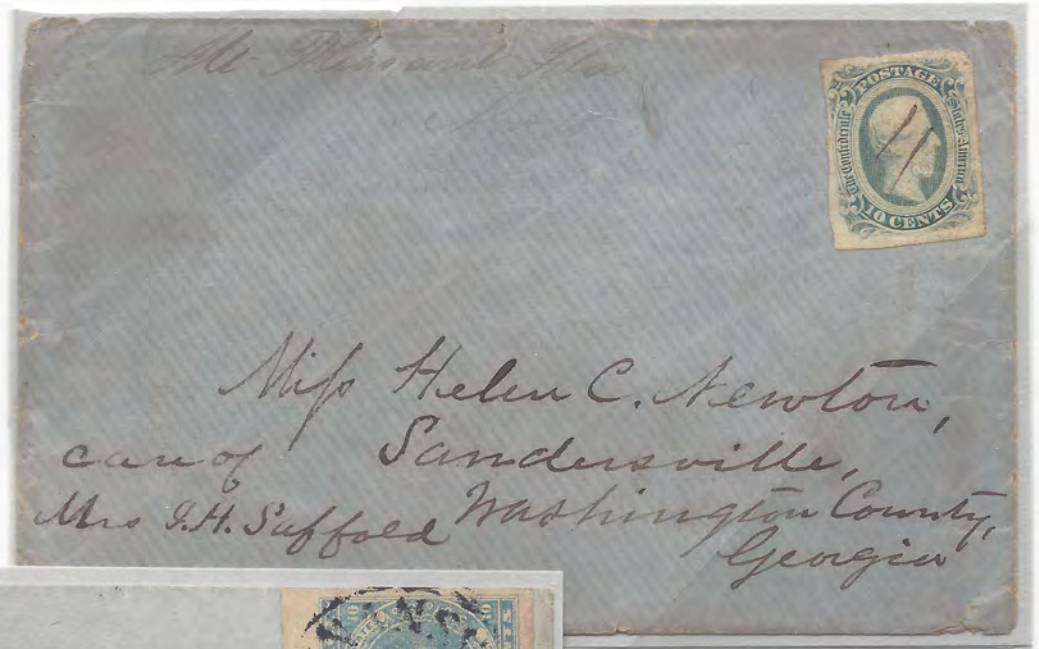 Mt Pleasant Fla
POSTAGE
The Confederate States of America
10 CENTS
Miſs Helen C. Newton,
care of Sandersville,
Mrs J.H. Saffold Washington County,
Georgia